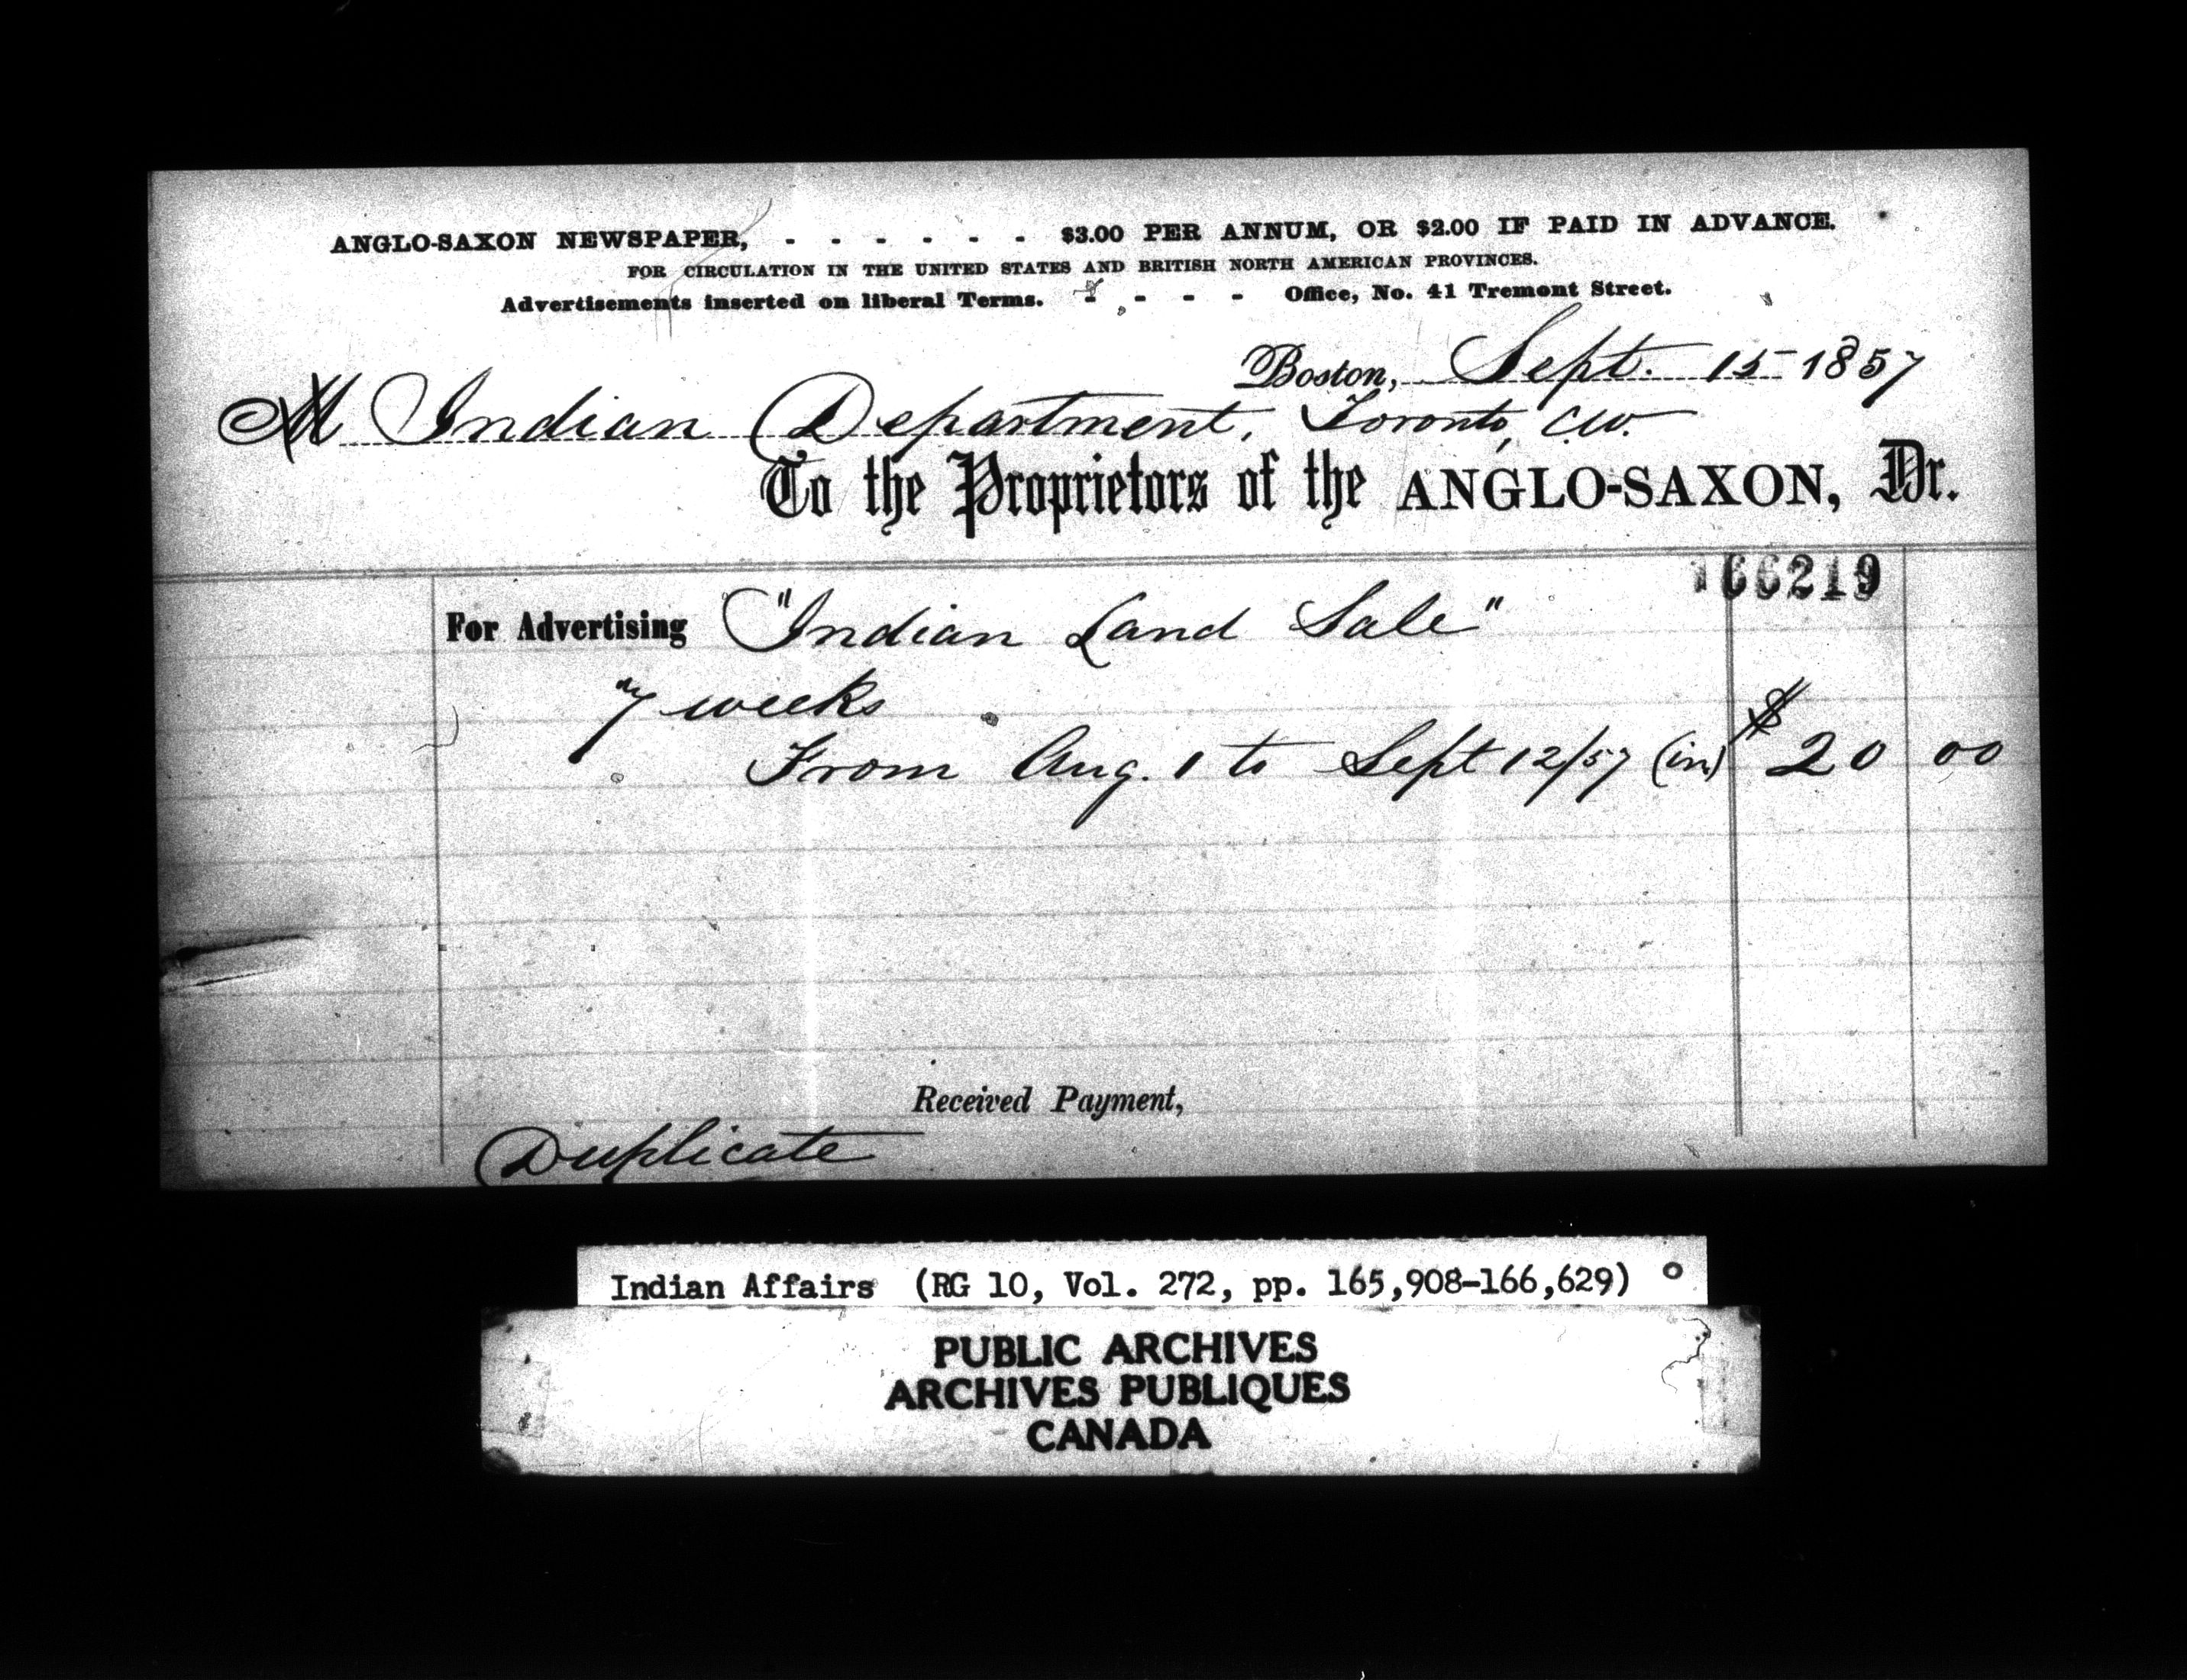 ANGLO-SAXON NEWSPAPER, - - - - - - $3.00 PER ANNUM, OR $2.00 IF PAID IN ADVANCE.
FOR CIRCULATION IN THE UNITED STATES AND BRITISH NORTH AMERICAN PROVINCES.
Advertisements inserted on liberal Terms. - - - - Office, No. 41 Tremont Street.
Boston, Sept. 15 1857
M Indian Department, Toronto, C.W.
To the Proprietors of the ANGLO-SAXON, Dr.
166219
For Advertising "Indian Land Sale"
7 weeks
From Aug. 1 to Sept 12/57 (in) $20 00
Received Payment,
Duplicate
Indian Affairs (RG 10, Vol. 272, pp. 165,908-166,629)
PUBLIC ARCHIVES
ARCHIVES PUBLIQUES
CANADA